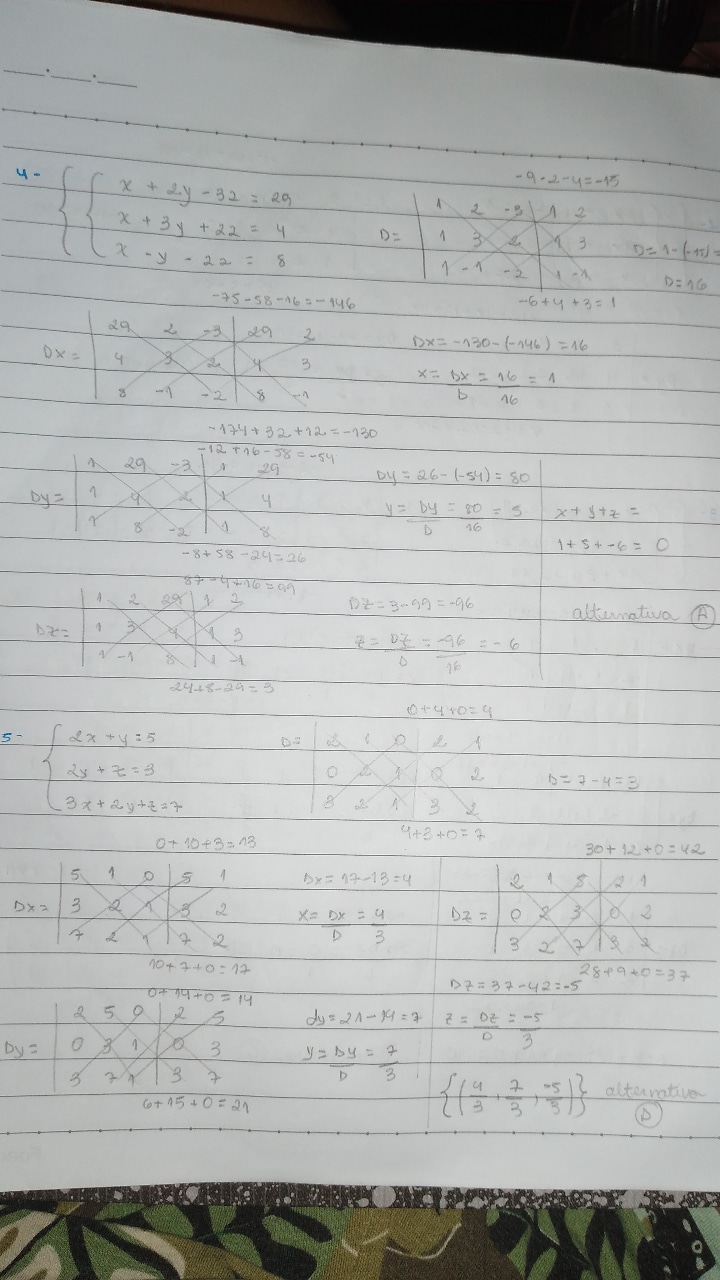 4-
x + 2y - 3z = 29
x + 3y + 2z = 4
x - y - 2z = 8
-9-2-4=-15
D=
1 2 -3 1 2
1 3 2 1 3
1 -1 -2 1 -1
-6+4+3=1
D=1-(-15)=
D=16
-75-58-16=-146
Dx=
29 2 -3 29 2
4 3 2 4 3
8 -1 -2 8 -1
-174+32+12=-130
Dx=-130-(-146)=16
x=Dx/D=16/16=1
-12+16-58=-54
Dy=
1 29 -3 1 29
1 4 2 1 4
1 8 -2 1 8
-8+58-24=26
Dy=26-(-54)=80
y=Dy/D=80/16=5
x+y+z=
1+5+-6=0
alternativa A
87-4+16=99
Dz=
1 2 29 1 2
1 3 4 1 3
1 -1 8 1 -1
24+8-29=3
Dz=3-99=-96
z=Dz/D=-96/16=-6
5-
2x+y=5
2y+z=3
3x+2y+z=7
0+4+0=4
D=
2 1 0 2 1
0 2 1 0 2
3 2 1 3 2
4+3+0=7
D=7-4=3
0+10+3=13
Dx=
5 1 0 5 1
3 2 1 3 2
7 2 1 7 2
10+7+0=17
Dx=17-13=4
x=Dx/D=4/3
30+12+0=42
Dz=
2 1 5 2 1
0 2 3 0 2
3 2 7 3 2
28+9+0=37
Dz=37-42=-5
z=Dz/D=-5/3
0+14+0=14
Dy=
2 5 0 2 5
0 3 1 0 3
3 7 1 3 7
6+15+0=21
dy=21-14=7
y=Dy/D=7/3
{(4/3, 7/3, -5/3)} alternativa
D